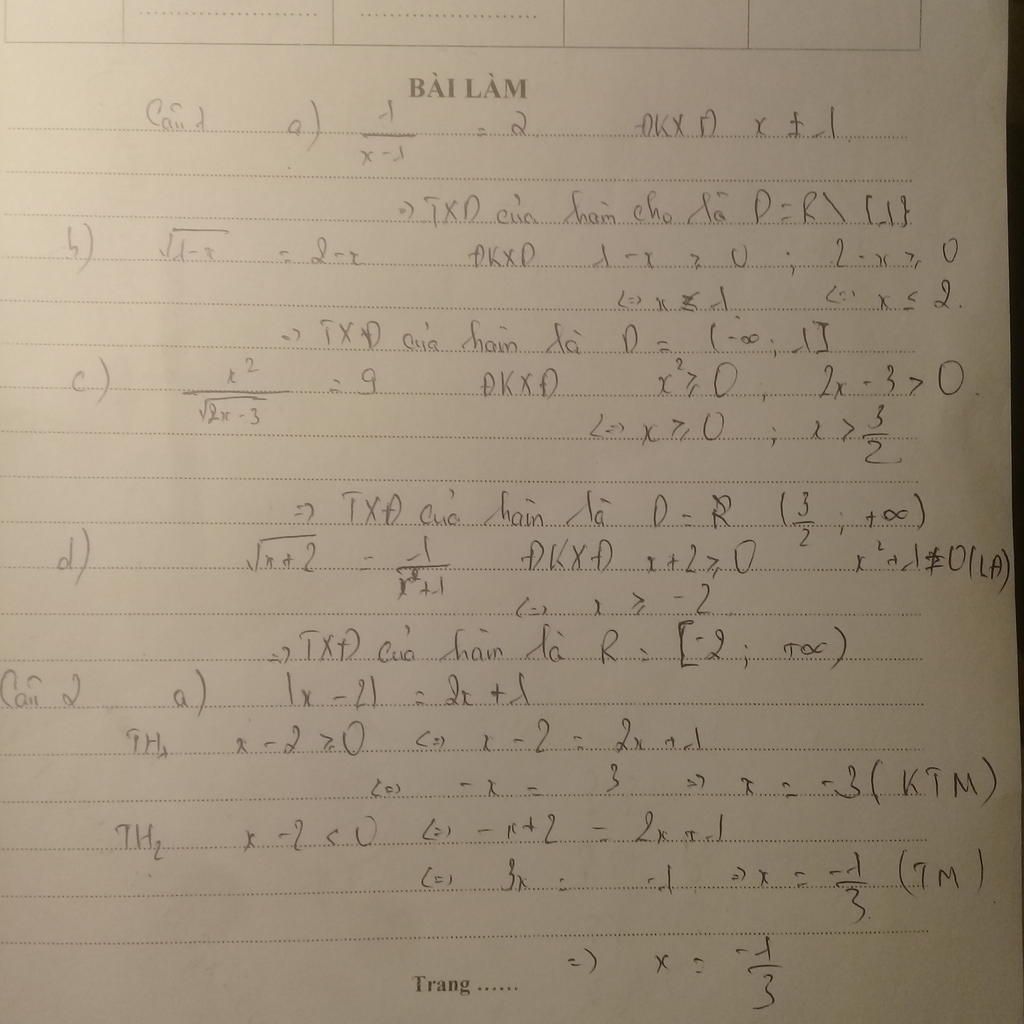 BÀI LÀM
Câu 1 a) 1/(x-1) = 2 ĐKXĐ x ≠ 1
=> TXĐ của hàm cho là D = R \ {1}
b) √(1-x) = 2-x ĐKXĐ 1-x ≥ 0 ; 2-x ≥ 0
<=> x ≤ 1 <=> x ≤ 2.
=> TXĐ của hàm là D = (-∞; 1]
c) x²/√(2x-3) = 9 ĐKXĐ x² ≥ 0 ; 2x - 3 > 0.
<=> x ≥ 0 ; x > 3/2
=> TXĐ của hàm là D = R (3/2 ; +∞)
d) √(x+2) = 1/(x²+1) ĐKXĐ x+2 ≥ 0 x²+1 ≠ 0 (LĐ)
<=> x ≥ -2
=> TXĐ của hàm là R = [-2 ; +∞)
Câu 2 a) |x-2| = 2x+1
TH1 x-2 ≥ 0 <=> x-2 = 2x+1
<=> -x = 3 => x = -3 (KTM)
TH2 x-2 < 0 <=> -x+2 = 2x+1
<=> 3x = -1 => x = -1/3 (TM)
=> x = -1/3
Trang ......